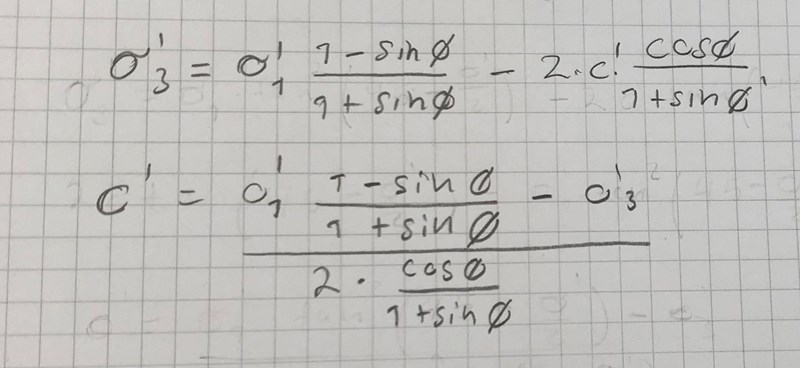 σ'₃ = σ'₁ (1 - sin ø)/(1 + sin ø) - 2 · c' · (cos ø)/(1 + sin ø)
c' = (σ'₁ (1 - sin ø)/(1 + sin ø) - σ'₃)/(2 · (cos ø)/(1 + sin ø))